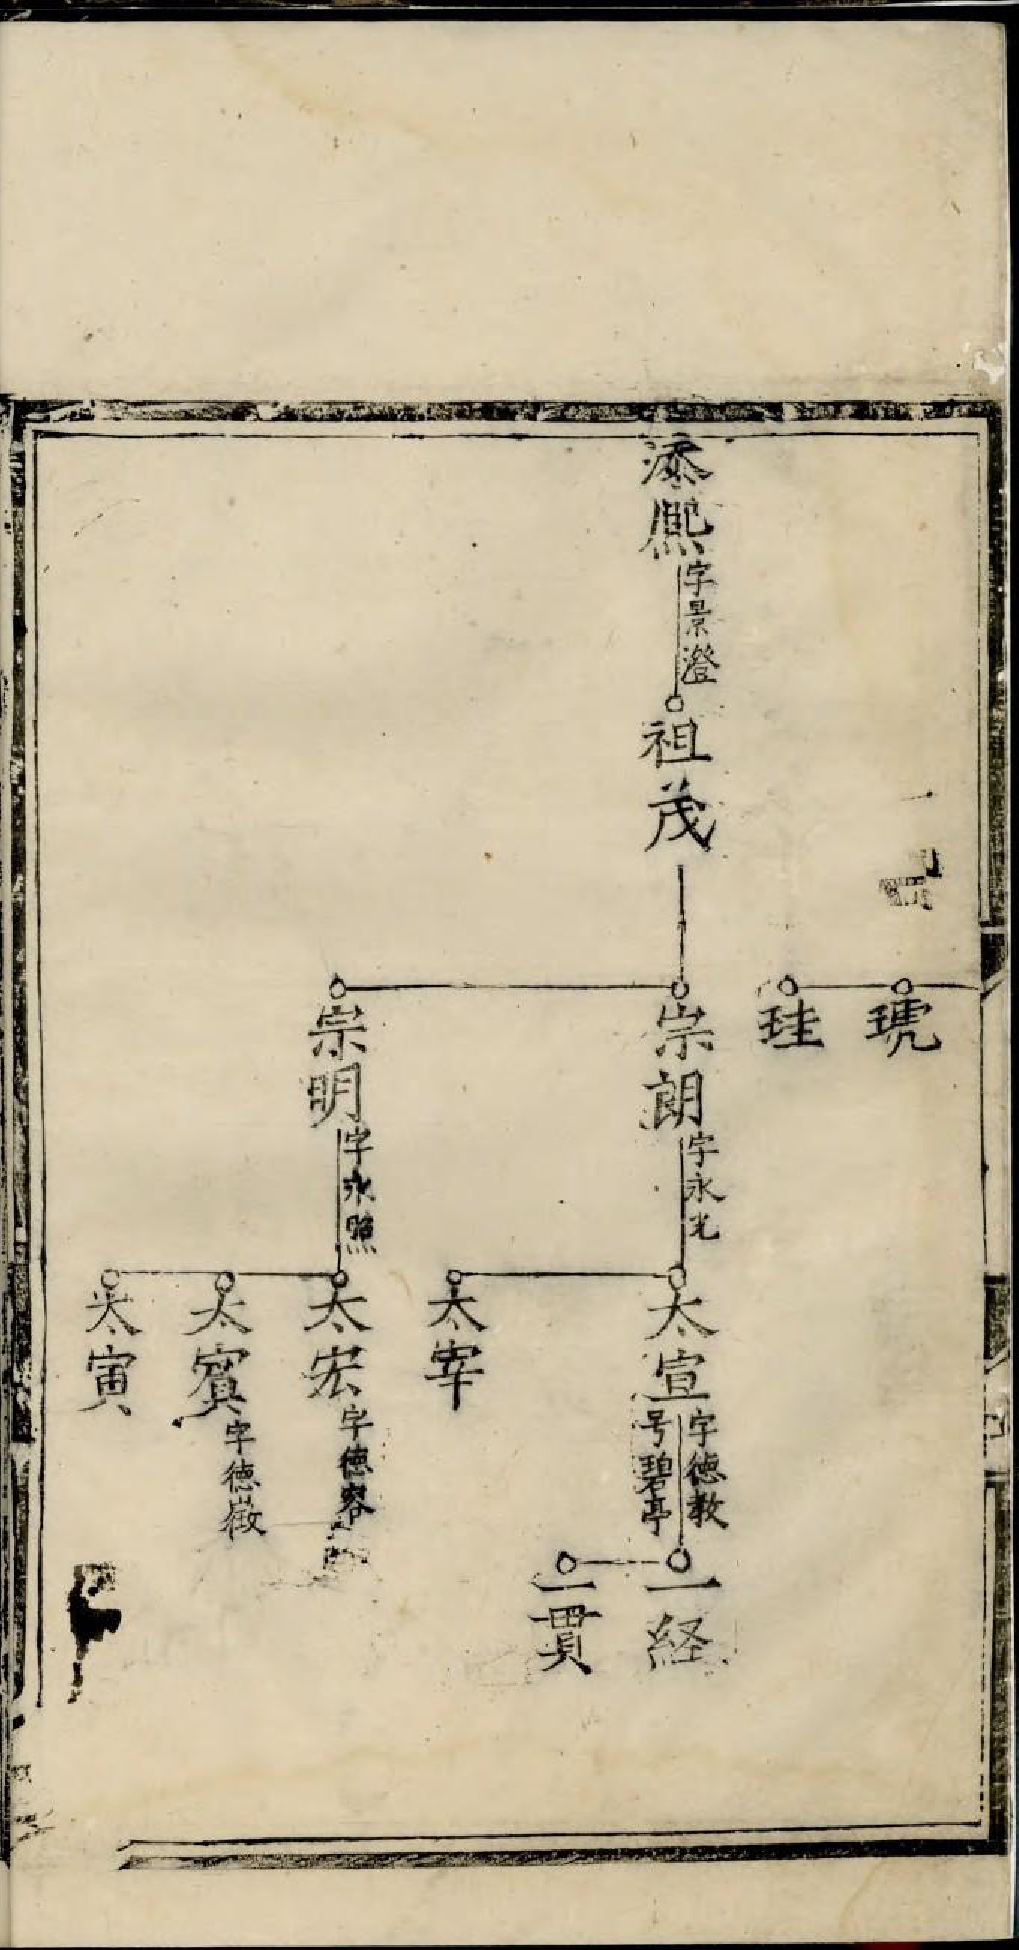 琥
珪
添熈 字景澄
祖茂
宗朗 字永光
太宣 字德教 号碧亭
一経
一貫
太宰
宗明 字永照
太宏 字德容
太賔 字德㣲
太寅